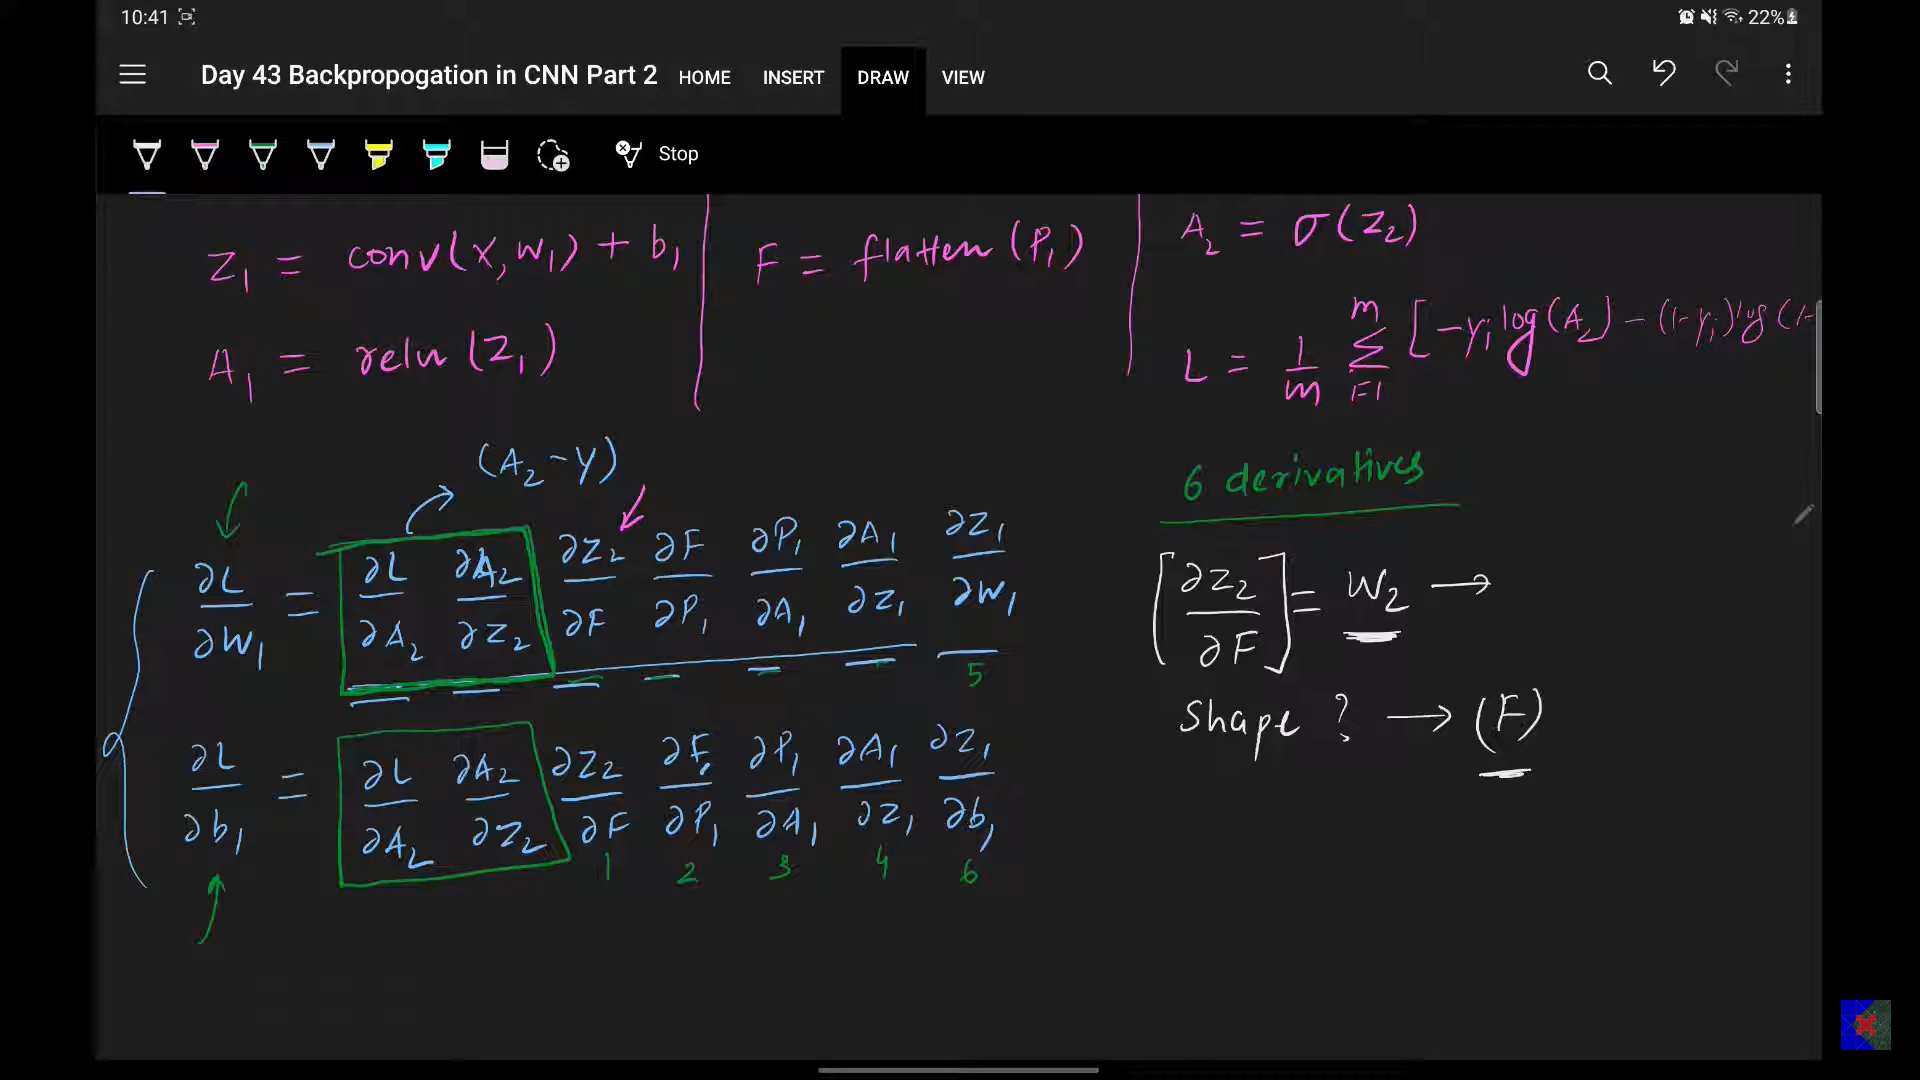 10:41 22%
Day 43 Backpropogation in CNN Part 2 HOME INSERT DRAW VIEW
Stop
Z₁ = conv(X, W₁) + b₁
A₁ = relu(Z₁)
F = flatten(P₁)
A₂ = σ(Z₂)
L = 1/m Σ_{i=1}^{m} [-yᵢ log(A₂) - (1-yᵢ) log(1-
(A₂ - Y)
∂L/∂W₁ = ∂L/∂A₂ ∂A₂/∂Z₂ ∂Z₂/∂F ∂F/∂P₁ ∂P₁/∂A₁ ∂A₁/∂Z₁ ∂Z₁/∂W₁
5
∂L/∂b₁ = ∂L/∂A₂ ∂A₂/∂Z₂ ∂Z₂/∂F ∂F/∂P₁ ∂P₁/∂A₁ ∂A₁/∂Z₁ ∂Z₁/∂b₁
1 2 3 4 6
6 derivatives
[∂Z₂/∂F] = W₂ →
Shape ? → (F)